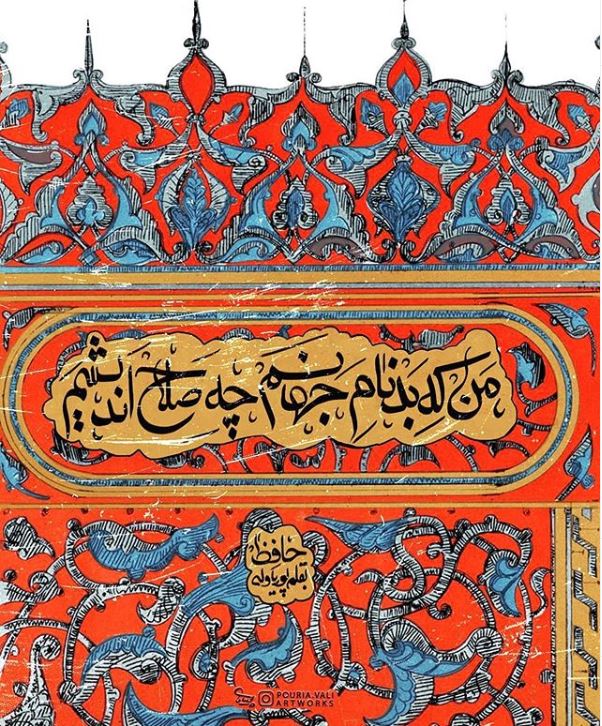 من که بدنامِ جهانم چه صلاح اندیشم
حافظ
بقلم پوریا ولی
POURIA.VALI
ARTWORKS